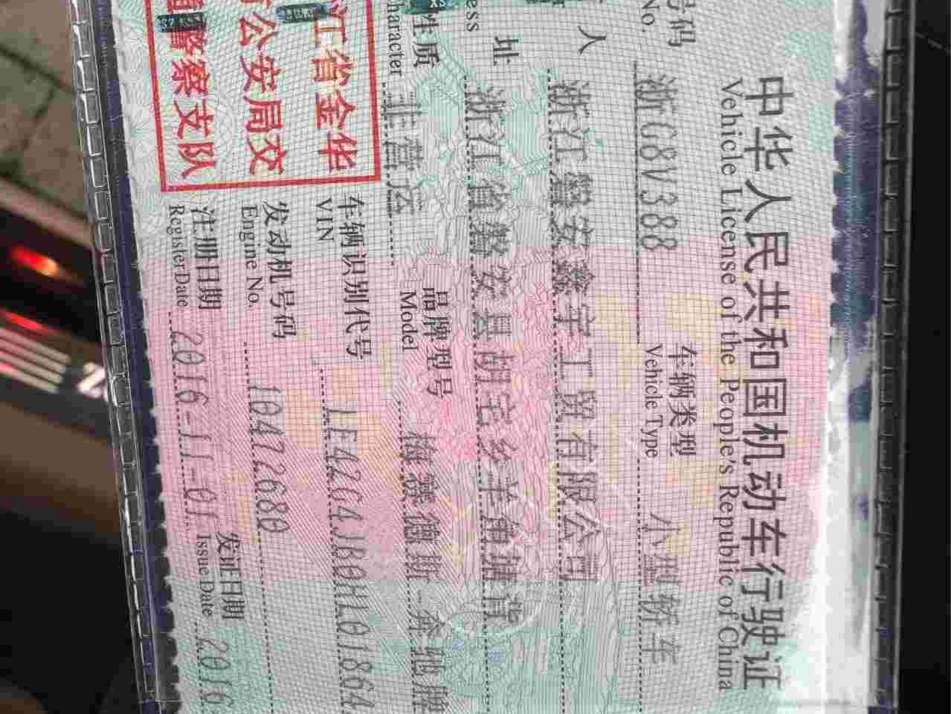 中华人民共和国机动车行驶证
Vehicle License of the People's Republic of China
号码 浙G8V388 车辆类型 小型轿车
No. Vehicle Type
人 浙江磐安鑫宇工贸有限公司
址 浙江省磐安县胡宅乡羊角塘背
ess
性质 非营运 品牌型号 梅赛德斯-奔驰牌
haracter Model
江省金华
公安局交
警察支队
车辆识别代号 LE42G4JB0HL01864
VIN
发动机号码 10472680
Engine No.
注册日期 2016-11-01 发证日期 2016
Register Date Issue Date